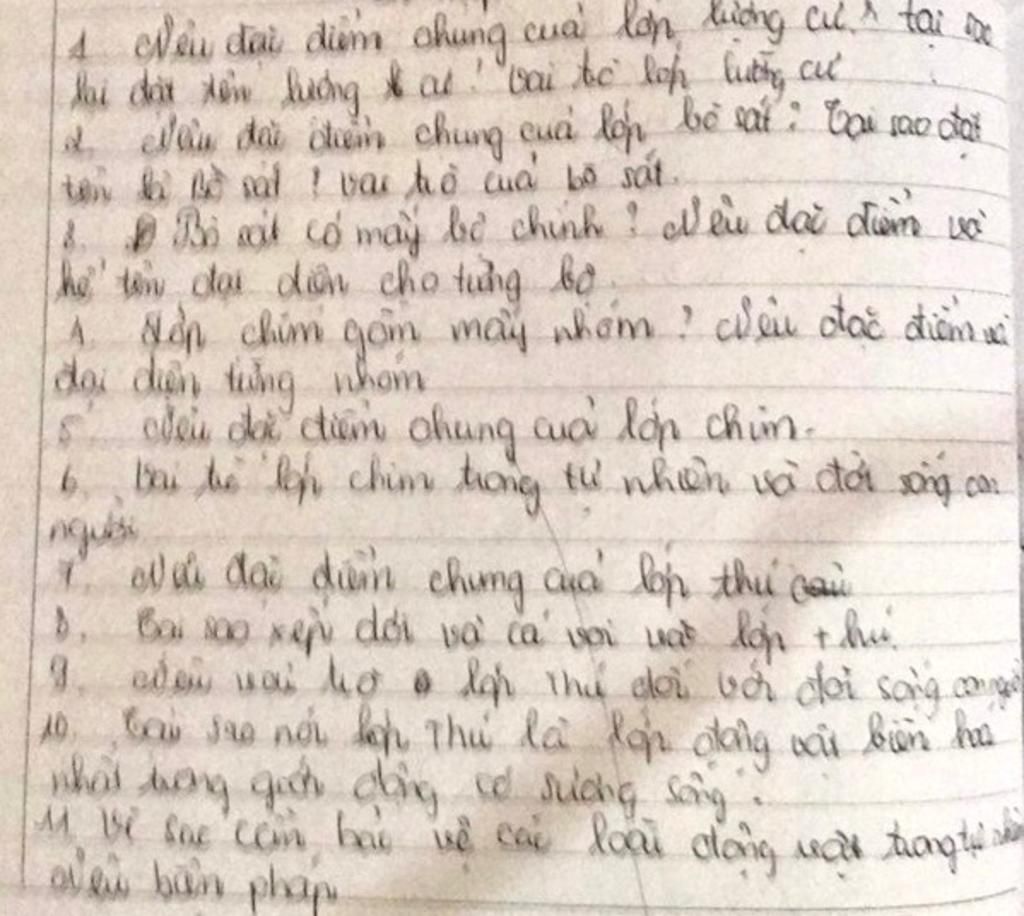 1 Nêu đặc điểm chung của lớp lưỡng cư? tại sao
lại đặt tên lưỡng cư? Vai trò lớp lưỡng cư
2. Nêu đặc điểm chung của lớp bò sát? Tại sao đặt
tên là bò sát? vai trò của bò sát.
3. Bò sát có mấy bộ chính? Nêu đặc điểm và
kể tên đại diện cho từng bộ.
4. Lớp chim gồm mấy nhóm? Nêu đặc điểm và
đại diện từng nhóm
5 Nêu đặc điểm chung của lớp chim.
6. Vai trò lớp chim trong tự nhiên và đời sống con
người
7. Nêu đặc điểm chung của lớp thú
8. Tại sao xếp dơi và cá voi vào lớp thú.
9. Nêu vai trò lớp thú đối với đời sống con người
10. Tại sao nói lớp Thú là lớp động vật tiến hoá
nhất trong giới động có xương sống?
11 Vì sao cần bảo vệ các loài động vật trong tự nhiên
Nêu biện pháp